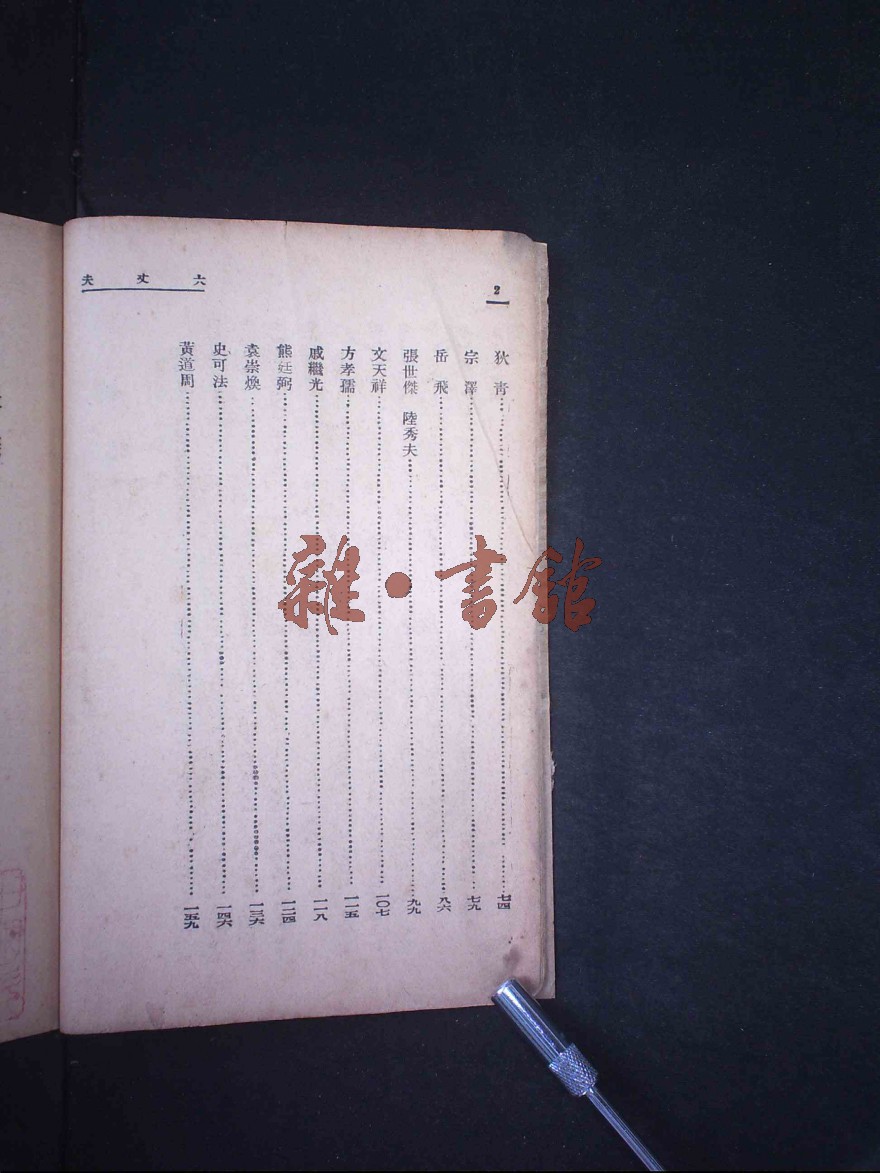 2
大丈夫
狄青……七四
宗澤……七九
岳飛……八六
張世傑 陸秀夫……九九
文天祥……一〇七
方孝孺……一一五
戚繼光……一一八
熊廷弼……一二四
袁崇煥……一三六
史可法……一四六
黃道周……一五九
雜·書館